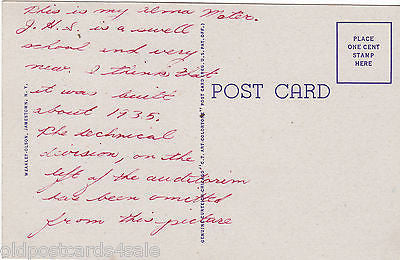 This is my Alma Mater.
J.H.S. is a swell
school and very
new. I think that
it was built
about 1935.
The technical
division, on the
left of the auditorium
has been omitted
from this picture
PLACE
ONE CENT
STAMP
HERE
POST CARD
WEAKLEY-OLSON, JAMESTOWN, N. Y.
GENUINE CURTEICH-CHICAGO "C.T. ART-COLORTONE" POST CARD (REG. U.S. PAT. OFF.)
oldpostcards4sale